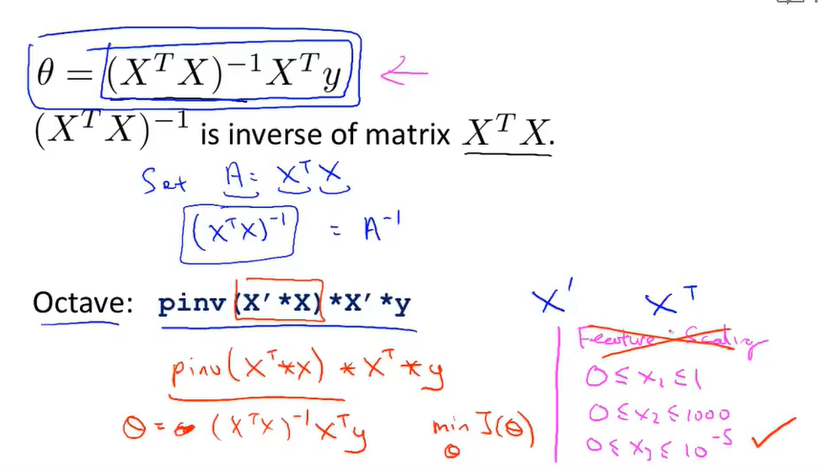 θ = (XᵀX)⁻¹Xᵀy ←
(XᵀX)⁻¹ is inverse of matrix XᵀX.
Set A = XᵀX
(XᵀX)⁻¹ = A⁻¹
Octave: pinv(X'*X)*X'*y
X' Xᵀ
pinv(Xᵀ*X) * Xᵀ * y
θ = (XᵀX)⁻¹Xᵀy
min J(θ)
θ
Feature Scaling
0 ≤ x₁ ≤ 1
0 ≤ x₂ ≤ 1000
0 ≤ x₃ ≤ 10⁻⁵ ✓